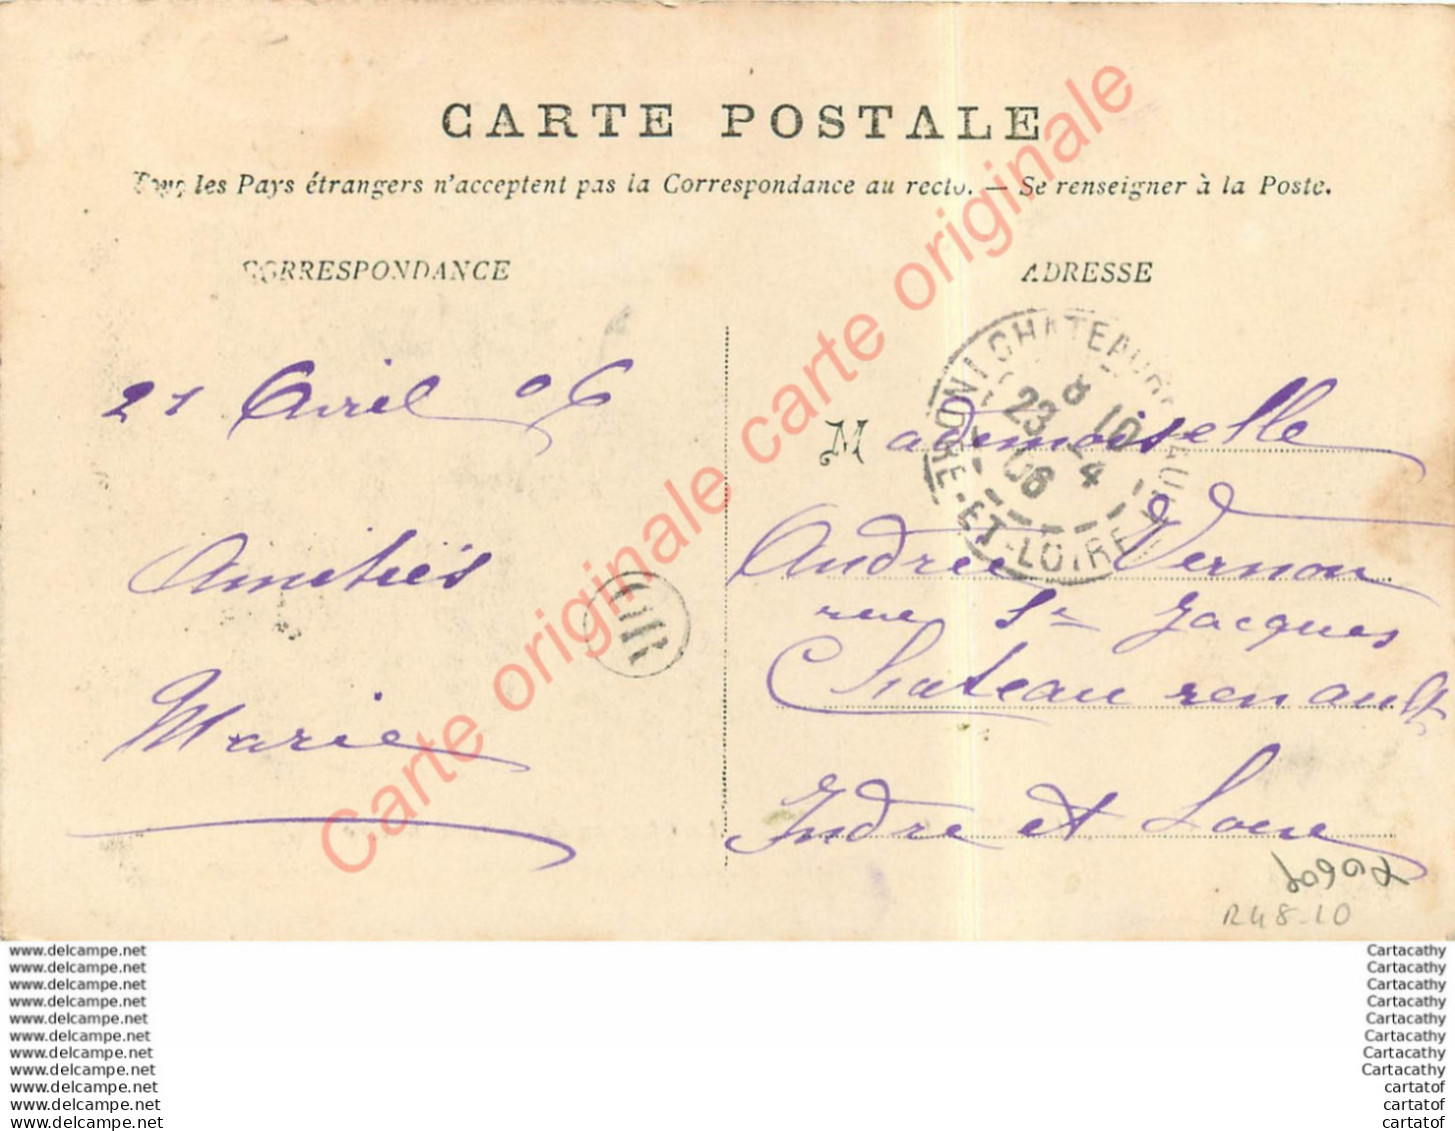 CARTE POSTALE
Tous les Pays étrangers n'acceptent pas la Correspondance au recto. — Se renseigner à la Poste.
CORRESPONDANCE
21 Avril 06
Amitiés
Marie
ADRESSE
Mademoiselle
Andrée Vernon
rue St Jacques
Chateau renault
Indre et Loire
CHATEAURENAULT
INDRE-ET-LOIRE
8 10
23 - 4
06
R48-10
Carte originale carte originale carte originale
www.delcampe.net
www.delcampe.net
www.delcampe.net
www.delcampe.net
www.delcampe.net
www.delcampe.net
www.delcampe.net
www.delcampe.net
www.delcampe.net
www.delcampe.net
www.delcampe.net
Cartacathy
Cartacathy
Cartacathy
Cartacathy
Cartacathy
Cartacathy
Cartacathy
Cartacathy
cartatof
cartatof
cartatof